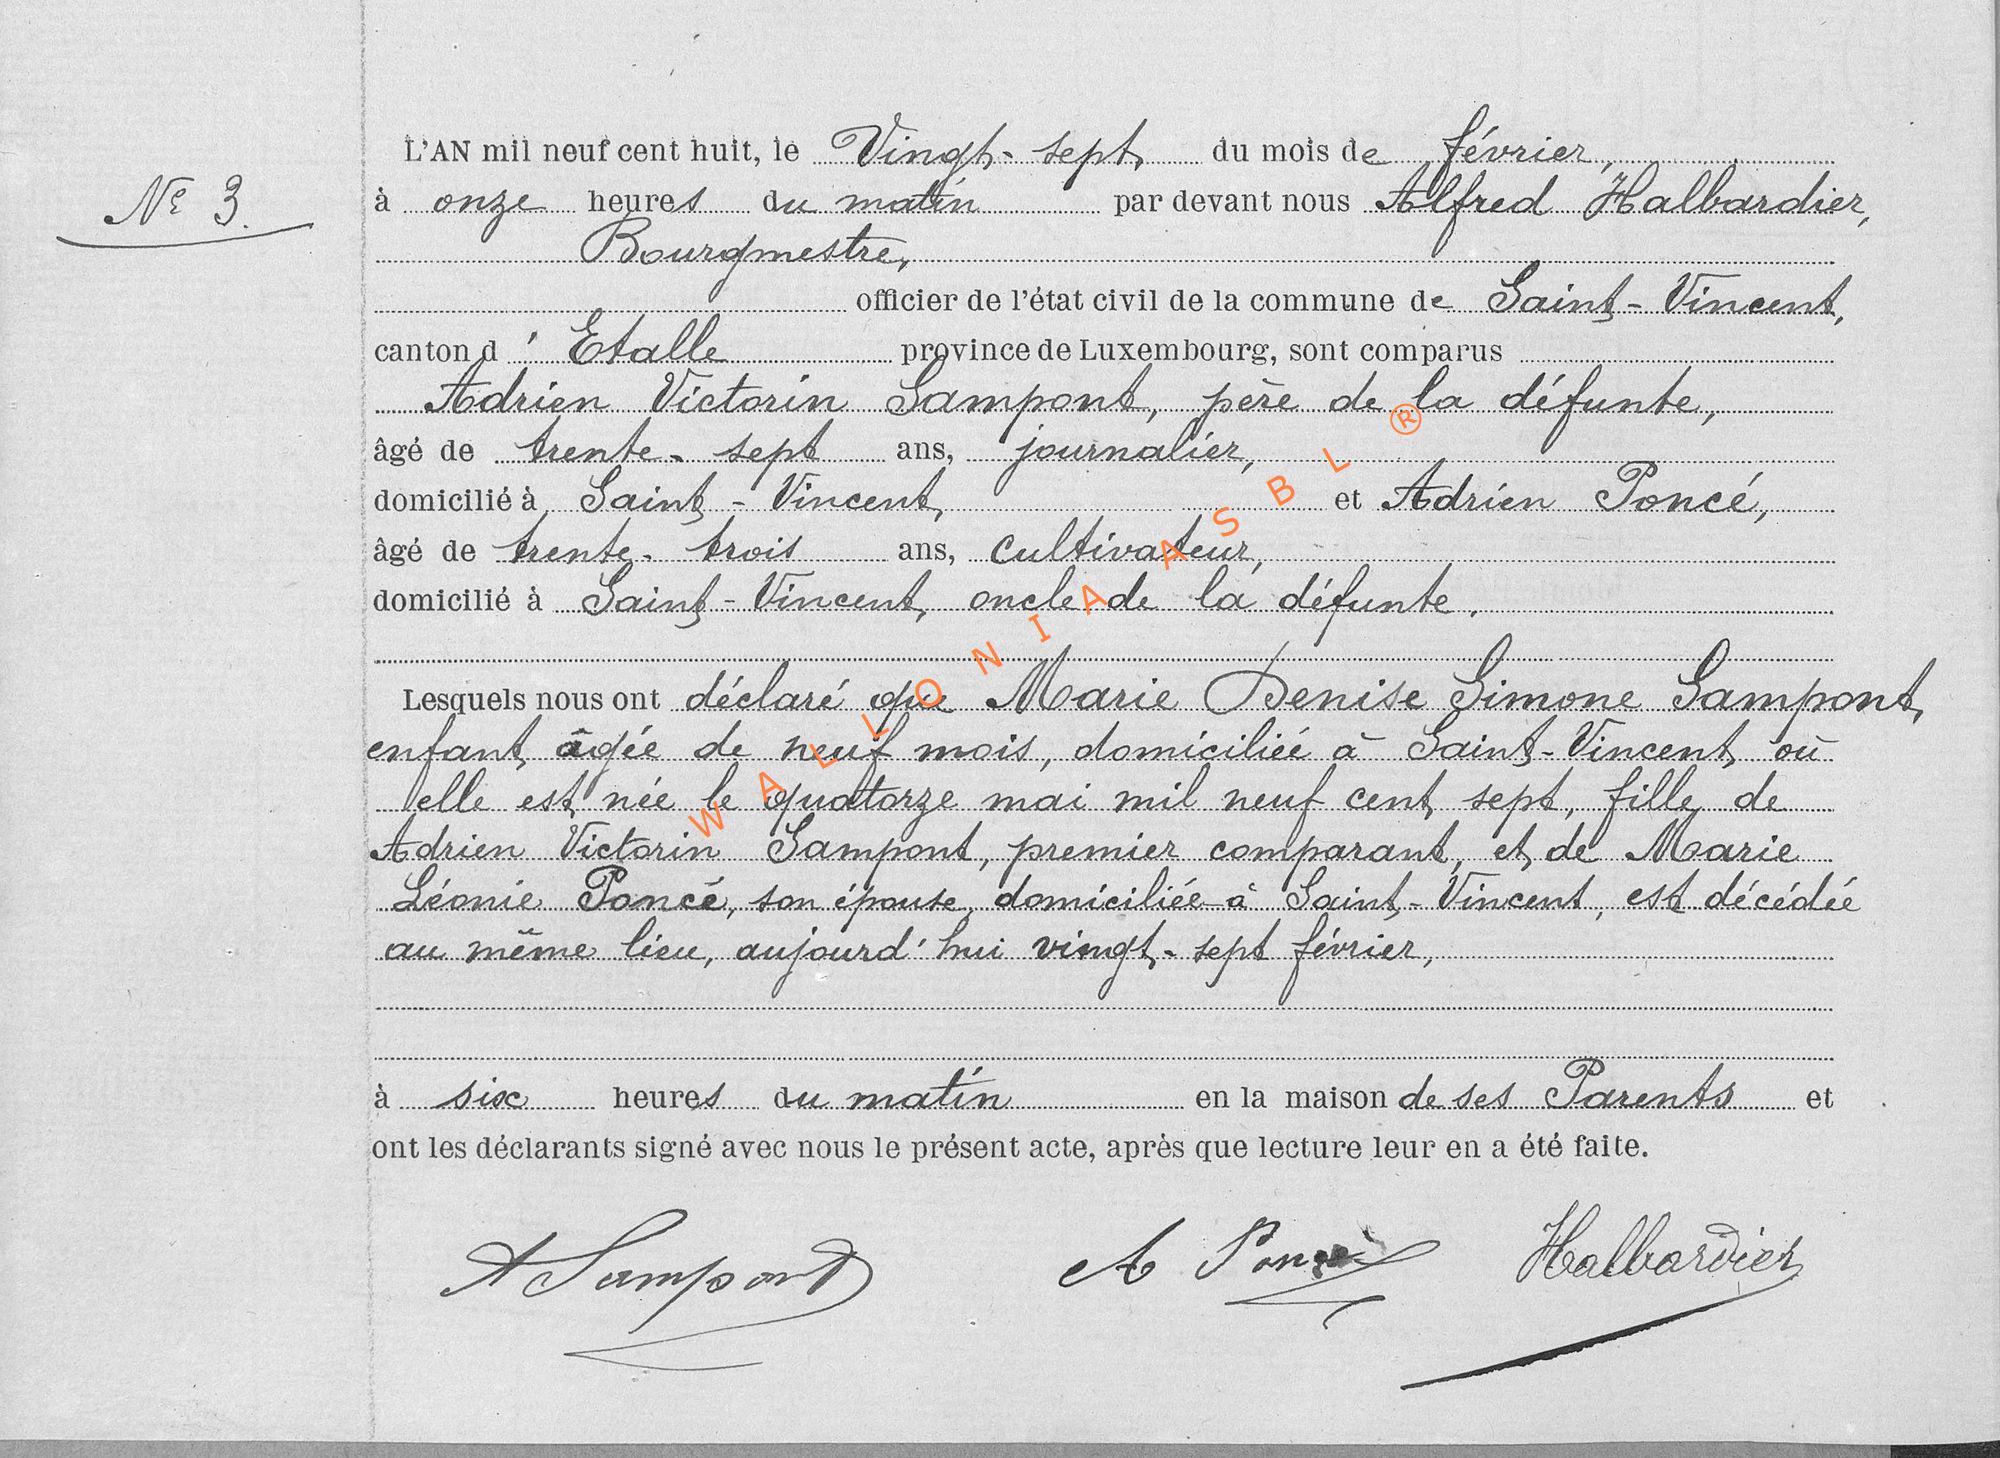 L'AN mil neuf cent huit, le Vingt-sept du mois de février,
N° 3.
à onze heures du matin par devant nous Alfred Halbardier,
Bourgmestre,
officier de l'état civil de la commune de Saint-Vincent,
canton d'Etalle province de Luxembourg, sont comparus
Adrien Victorin Sampont, père de la défunte,
âgé de trente-sept ans, journalier,
domicilié à Saint-Vincent, et Adrien Poncé,
âgé de trente-trois ans, cultivateur,
domicilié à Saint-Vincent, oncle de la défunte.
Lesquels nous ont déclaré que Marie Denise Simone Sampont,
enfant âgée de neuf mois, domiciliée à Saint-Vincent où
elle est née le quatorze mai mil neuf cent sept, fille de
Adrien Victorin Sampont, premier comparant, et de Marie
Léonie Poncé, son épouse, domiciliée à Saint-Vincent, est décédée
au même lieu, aujourd'hui vingt-sept février,
à six heures du matin en la maison de ses Parents et
ont les déclarants signé avec nous le présent acte, après que lecture leur en a été faite.
A Sampont A Poncé Halbardier
WALLONIA ASBL ®